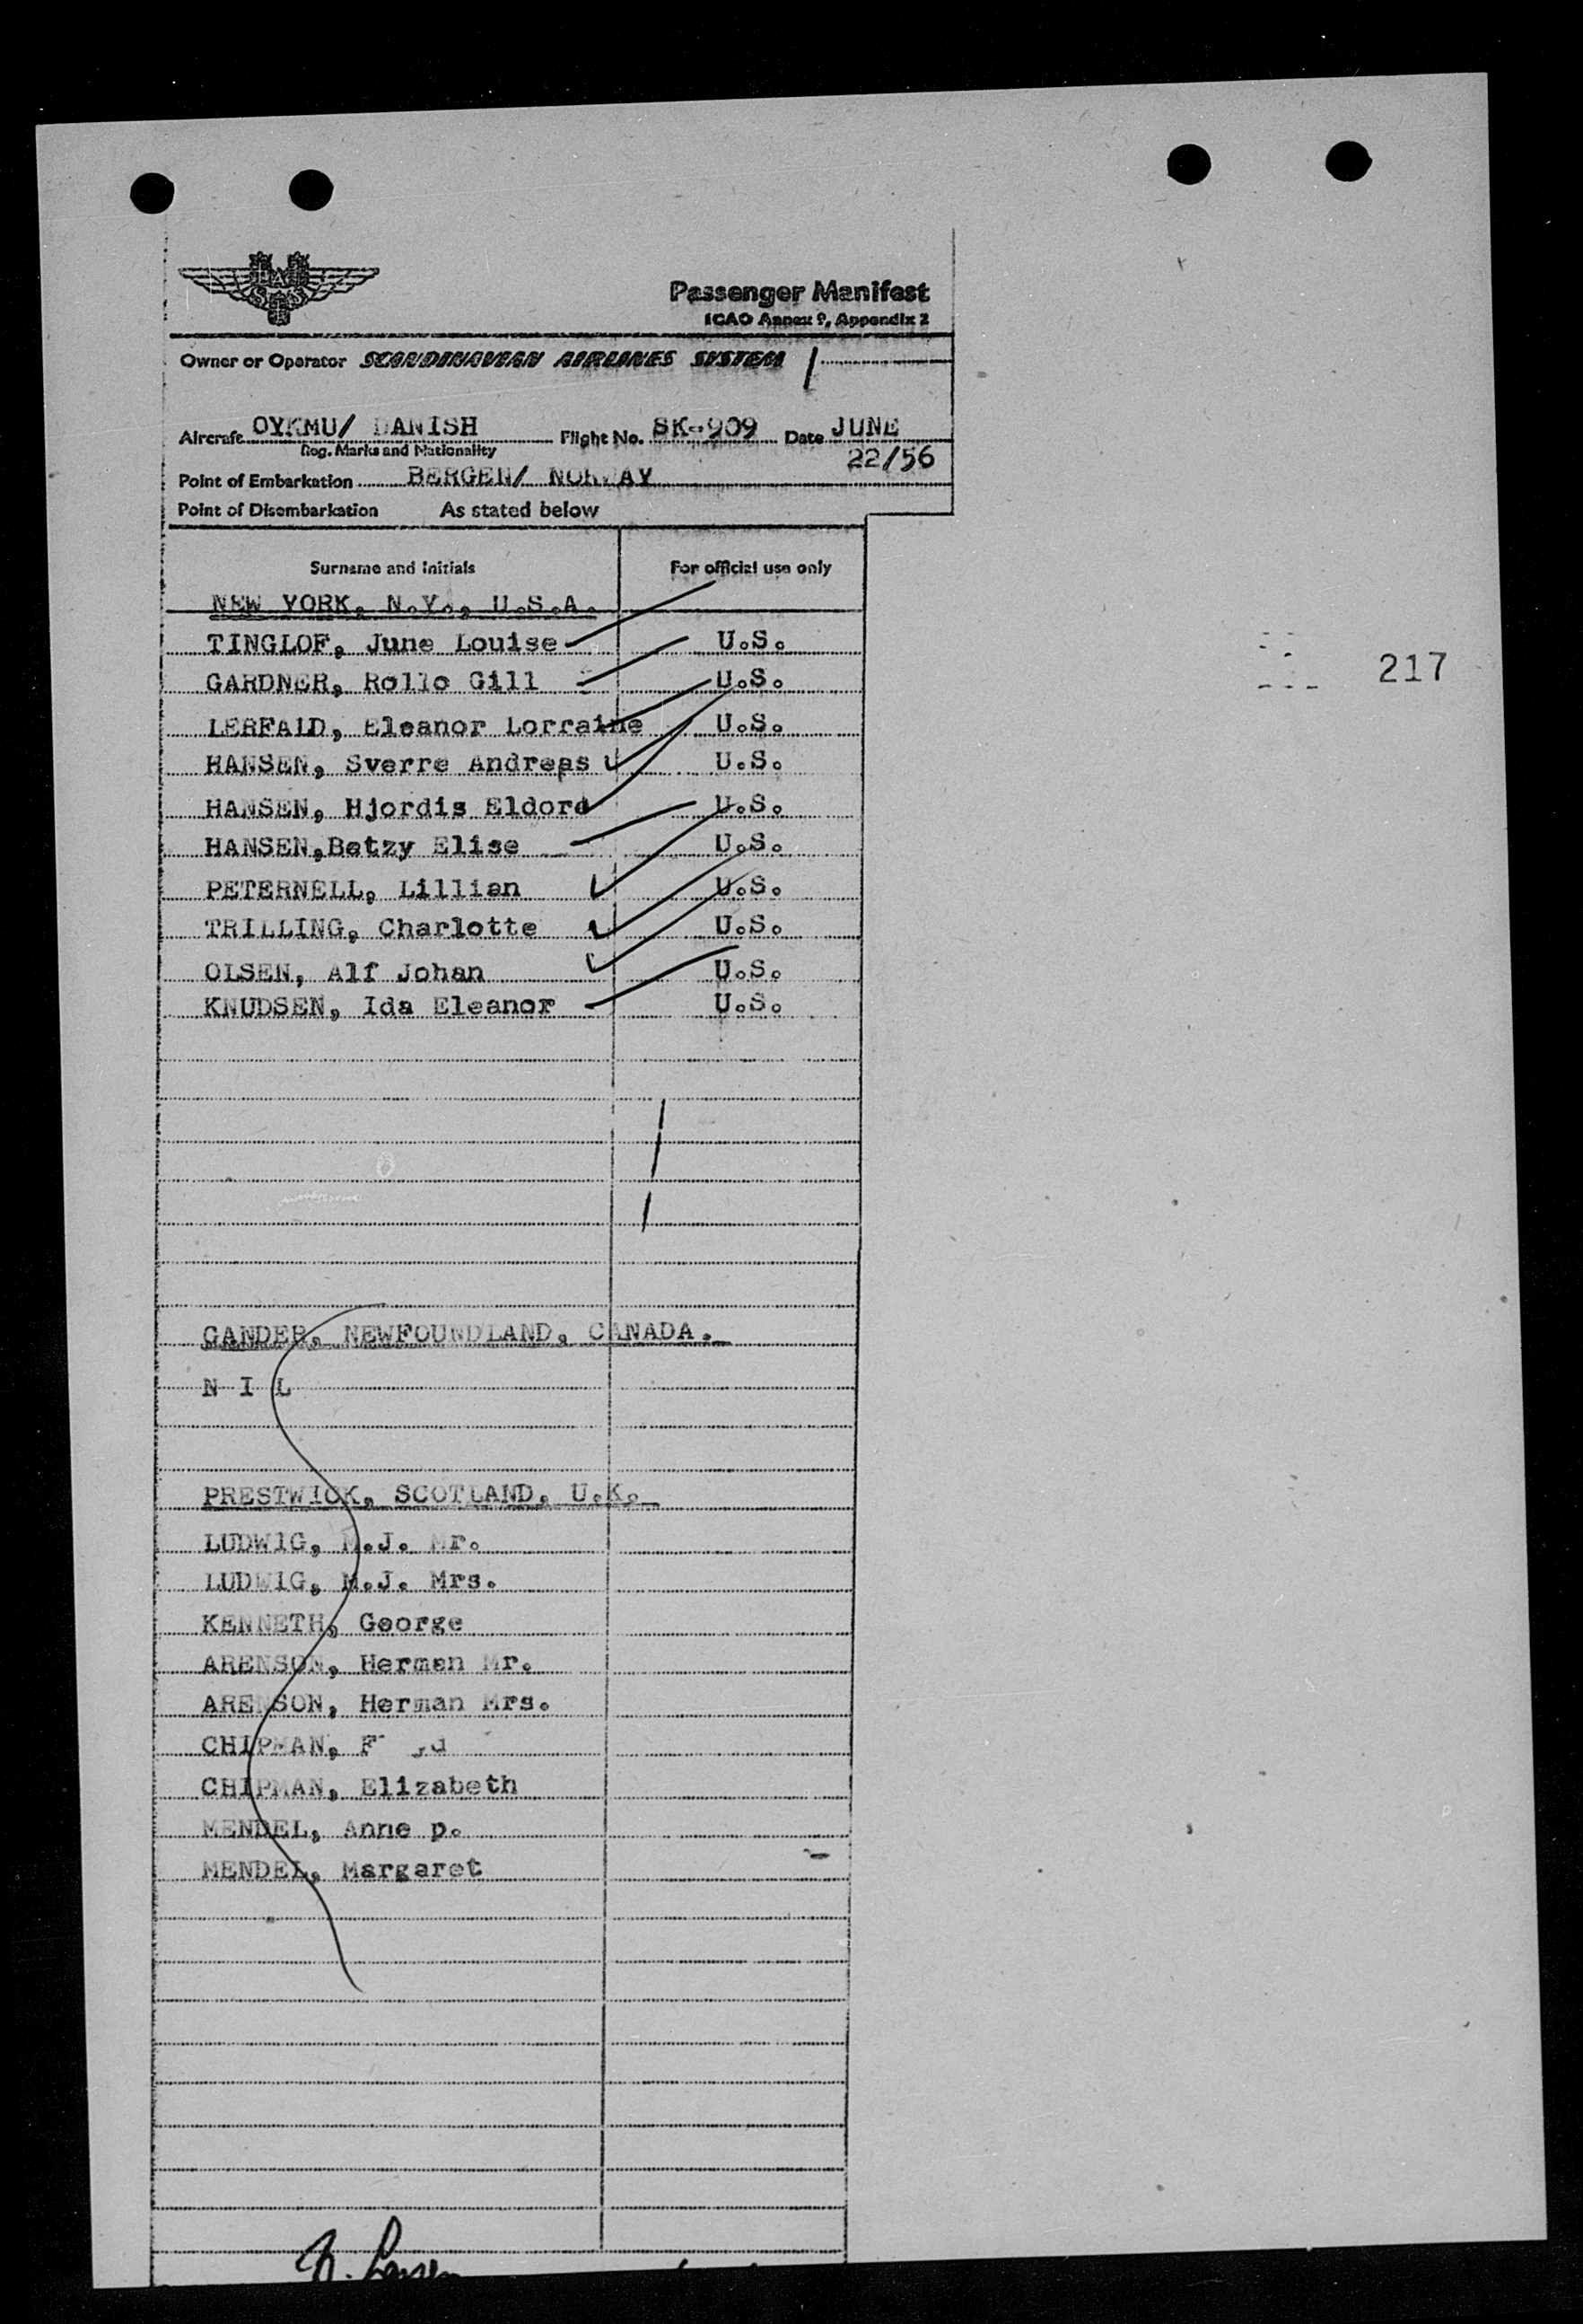 SAS
Passenger Manifest
ICAO Annex 9, Appendix 2
Owner or Operator SCANDINAVIAN AIRLINES SYSTEM
Aircraft OYKMU/ DANISH Flight No. SK-909 Date JUNE
Reg. Marks and Nationality 22/56
Point of Embarkation BERGEN/ NORWAY
Point of Disembarkation As stated below
Surname and Initials For official use only
NEW YORK, N.Y., U.S.A.
TINGLOF, June Louise U.S.
GARDNER, Rollo Gill U.S.
217
LERFALD, Eleanor Lorraine U.S.
HANSEN, Sverre Andreas U.S.
HANSEN, Hjordis Eldord U.S.
HANSEN,Betzy Elise U.S.
PETERNELL, Lillian U.S.
TRILLING, Charlotte U.S.
OLSEN, Alf Johan U.S.
KNUDSEN, Ida Eleanor U.S.
GANDER, NEWFOUNDLAND, CANADA.
N I L
PRESTWICK, SCOTLAND, U.K.
LUDWIG, M.J. Mr.
LUDWIG, M.J. Mrs.
KENNETH, George
ARENSON, Herman Mr.
ARENSON, Herman Mrs.
CHIPMAN,
CHIPMAN, Elizabeth
MENDEL, Anne p.
MENDEL, Margaret